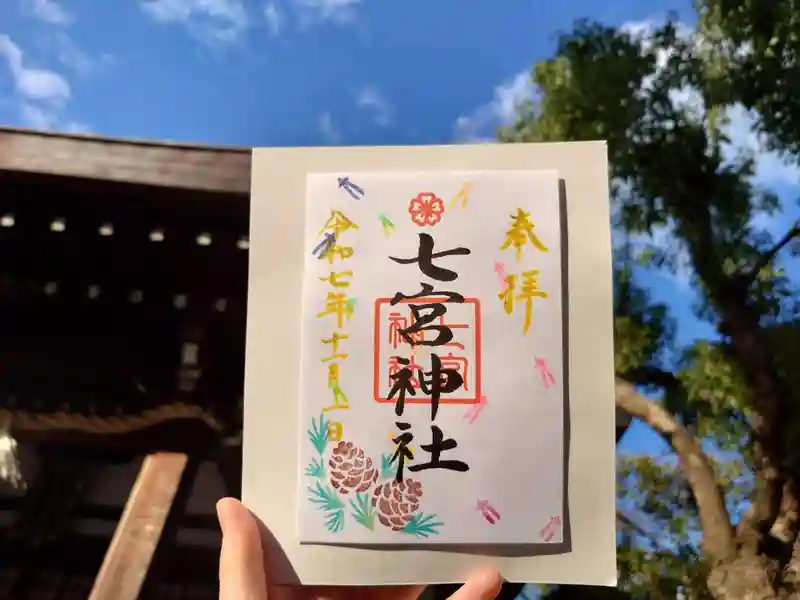 奉拝
七宮神社
七宮
神社
令和七年十一月二日